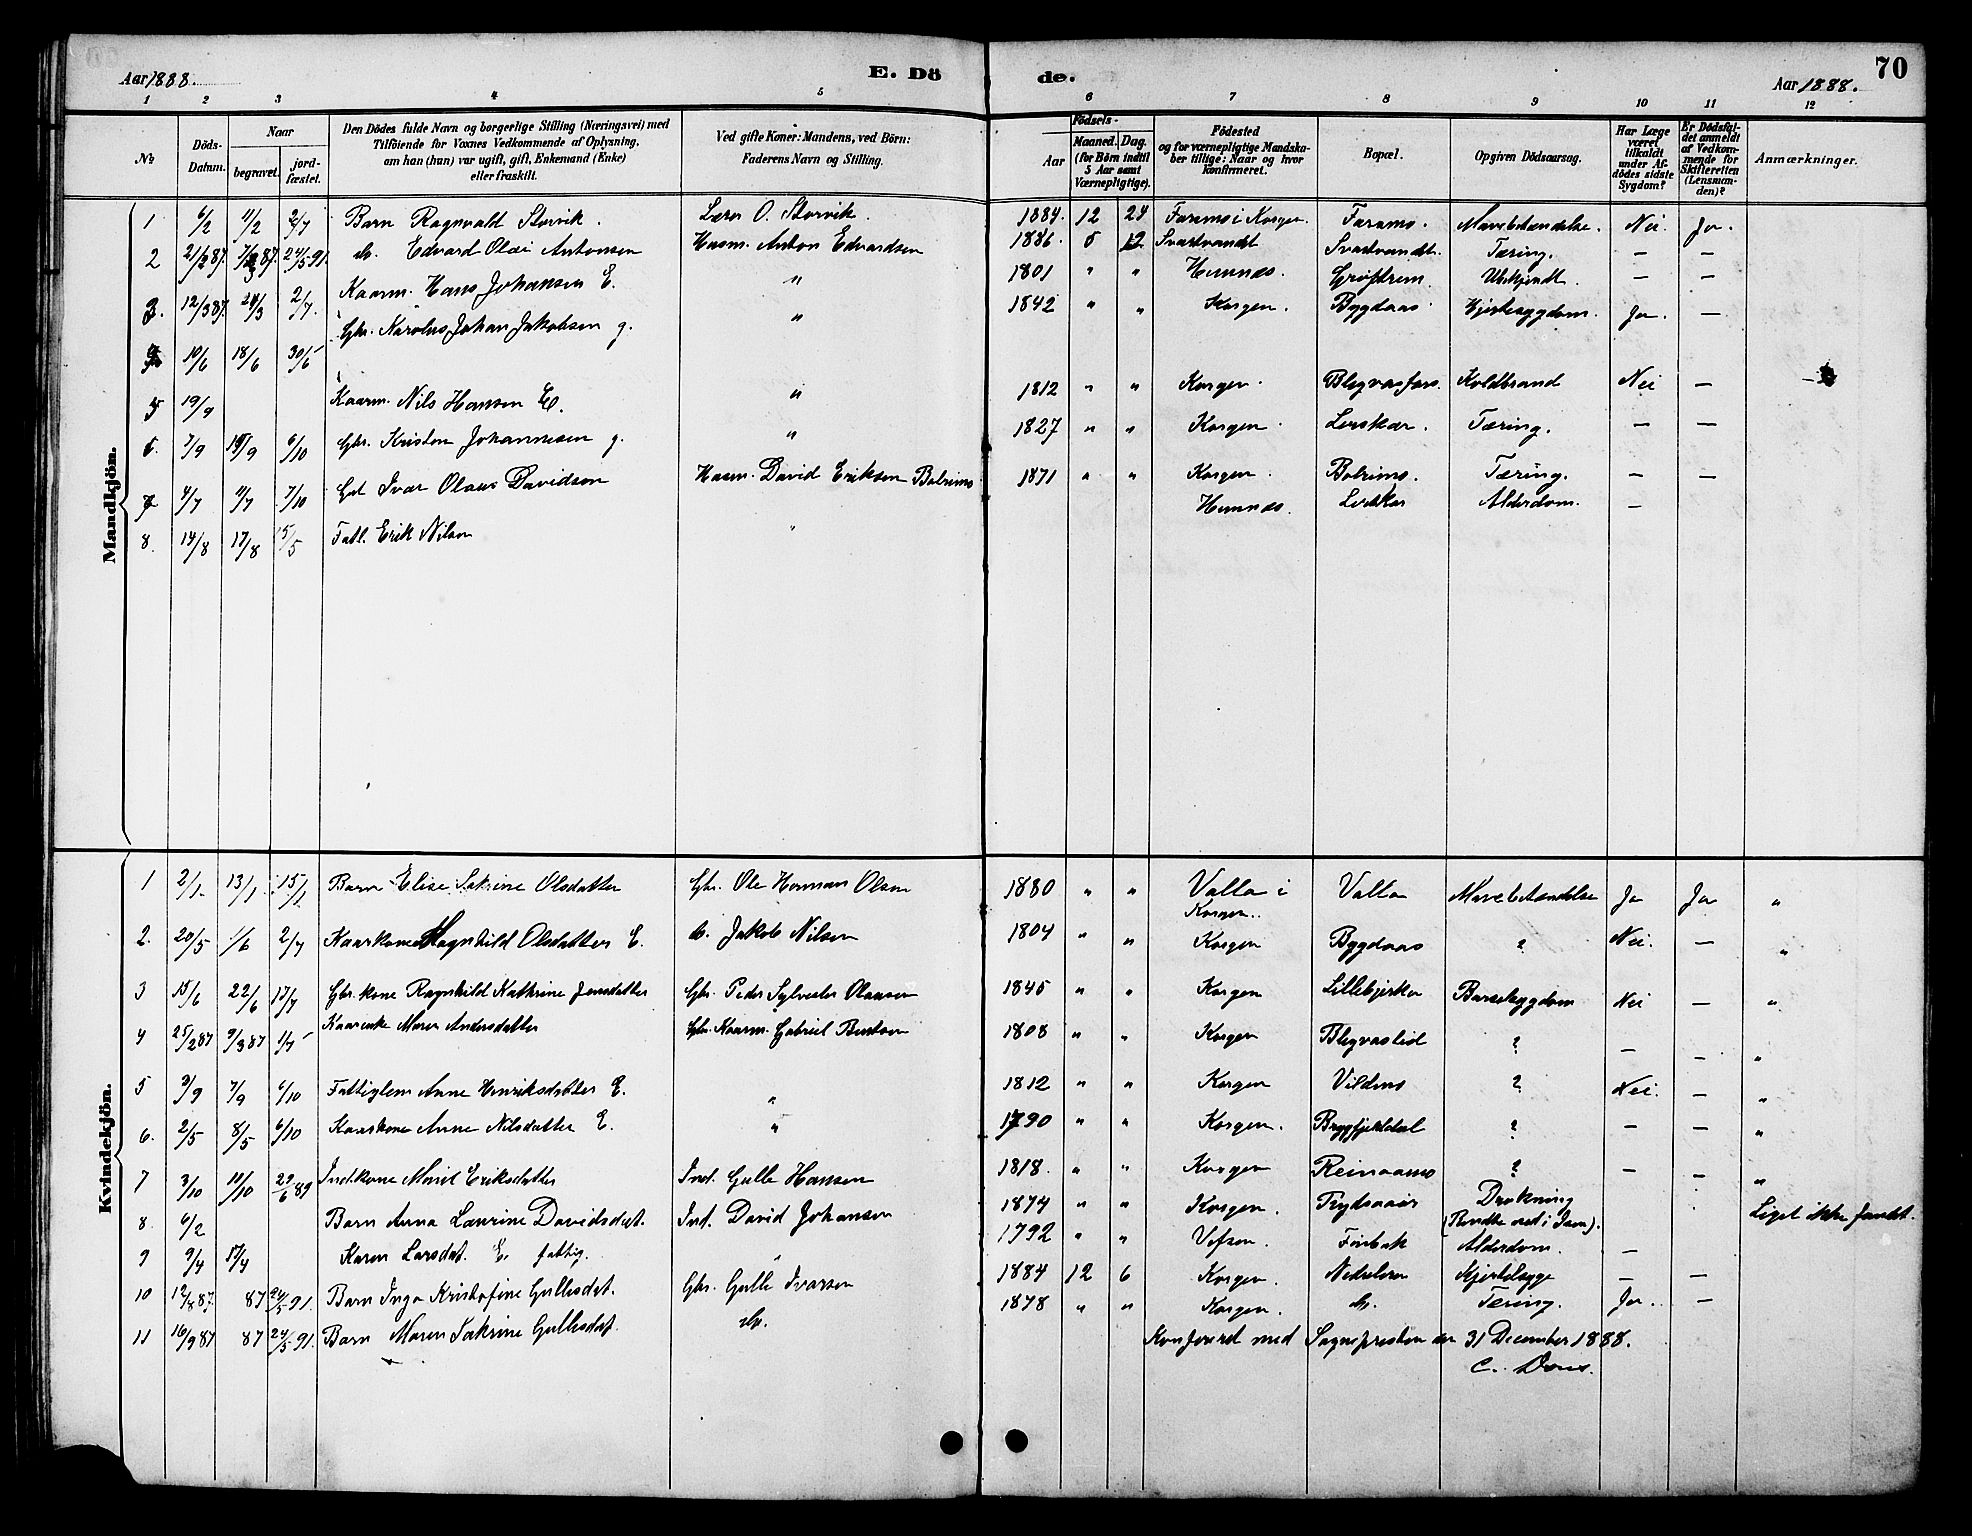 Aar 1888. E. Dö de. Aar 1888. 70
1 2 3 4 5 6 7 8 9 10 11 12
№ Döds-Datum. Naar begravet. jord-fæstet. Den Dödes fulde Navn og borgerlige Stilling (Næringsvei) med Tilföiende for Voxnes Vedkommende af Oplysning, om han (hun) var ugift, gift, Enkemand (Enke) eller fraskilt. Ved gifte Koner: Mandens, ved Börn: Faderens Navn og Stilling. Födsels- Aar Maaned. Dag. (for Börn indtil 5 Aar samt Værnepligtige). Födested og for værnepligtige Mandskaber tillige: Naar og hvor konfirmeret. Bopæl. Opgiven Dödsaarsag. Har Læge været tilkaldt under Afdödes sidste Sygdom? Er Dödsfaldet anmeldt af Vedkommende for Skifteretten (Lensmanden)? Anmærkninger.
Mandkjön.
1 6/2 11/2 2/7 Barn Ragnvald Storvik. Lærer O. Storvik. 1884. 12 24 Faramo i Korgen Faramo. Mavebetændelse. Nei. Ja.
2 21/2 87. 87. 24/5 91. do. Edvard Olai Antonsen Husm. Anton Edvardsen 1886. 5 12 Svartvandt Svartvandt. Tæring. — —
3. 12/3 87. 24/3 2/7. Kaarm. Hans Johansen E. " 1801 " " Hemnæs. Ubekjendt. — —
10/6 18/6 30/6 Gbr. Karolus Johan Jakobsen g. " 1842 " " Korgen. Bygdaas Hjertesygdom. Ja. —
5 19/9 Kaarm. Nils Hansen E. " 1812 " " Korgen. Koldbrand Nei —
6. 7/9 15/9 6/10 Gbr. Kristen Johannesen g. " 1827 " " Korgen. Lerskar. Tæring. — —
7 4/7 11/7 7/10 Ivar Olaus Davidsen Husm. David Eriksen Bolrimo 1871 " " Korgen. Bolrimo. Tæring. — —
8. 14/8 17/8 15/5 Fatl. Erik Nilsen " Hemnæs. Leskar Alderdom. —
Kvindekjön.
1 2/1. 13/1 15/1 Barn Elise Sakrine Olsdatter Gbr. Ole Herman Olsen 1880 " " Valla i Korgen.. Valla Mavebetændelse Ja Ja "
2. 20/5 1/6 2/7 Kaarkone Magnhild Olsdatter E. do. Jakob Nilsen 1804 " " Korgen Bygdaas ? Nei. — "
3 15/6 22/6 17/7 Gbr. kone Ragnhild Kathrine Jensdatter Gbr. Peder Sylvester Olausen 1845 " " Korgen Lillebjerka Barselsygdom Nei — "
4 25/2 87 9/3 87 1/7 Kaarenke Maren Andersdatter Gbr. Kaarm. Gabriel 1808 " " Korgen Blegvaslid ? — — "
5 3/9 7/9 6/10 Fattiglem Anne Henriksdatter E. " 1812 " " Korgen Vildmo ? Nei. — "
6. 2/5 8/5 6/10 Kaarkone Anne Nilsdatter E. " 1790 " " Korgen. Brygfjelddal ? — — "
7 3/10 10/10 29/6 89 Ind.kone Marit Eriksdatter Ind. Gulle Hansen 1818. " " Korgen Reinaamo ? — — "
8. 6/2 Barn Anna Laurine Davidsdat. Ind. David Johansen 1874 " " Korgen. Drukning (Rendte ned i Isen). Liget ikke fundet.
9 9/4 17/4 Karen Larsdat. E. fattig. " 1792 " " Vefsen. Finbak Alderdom. —
10 12/8 87. 87 24/5 91. Barn Inga Kristofine Gullesdat. Gbr. Gulle Ivarsen 1884 12 6 Korgen. Nedreleren — —
11 16/9 87 87 24/5 91. Barn Maren Sakrine Gullesdat. do. 1878 " " Korgen. do. Tæring. Ja. —
Konfereret med Sognepresten den 31 December 1888.
C. Dons.